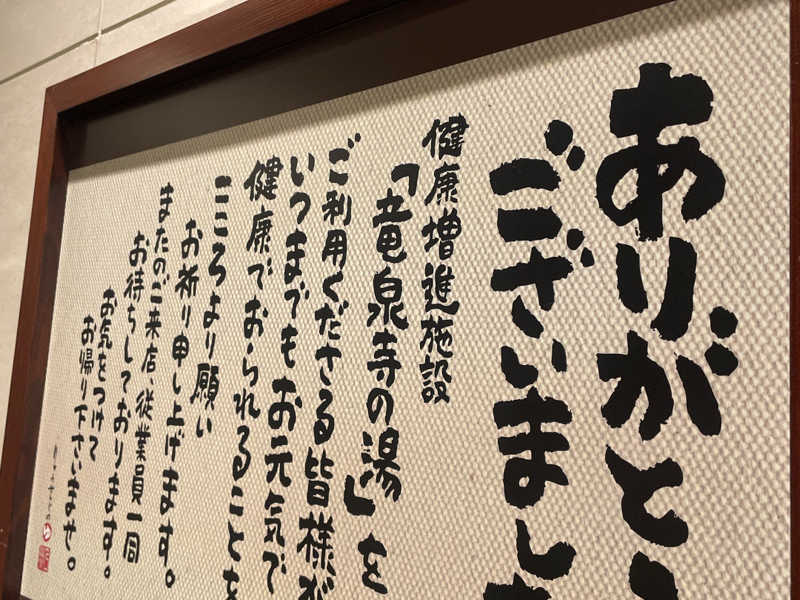 ありがと
ございまし
健康増進施設
「竜泉寺の湯」を
ご利用くださる皆様が
いつまでもお元気で
健康でおられることを
こころより願い
お祈り申し上げます。
またのご来店、従業員一同
お待ちしております。
お気をつけて
お帰り下さいませ。